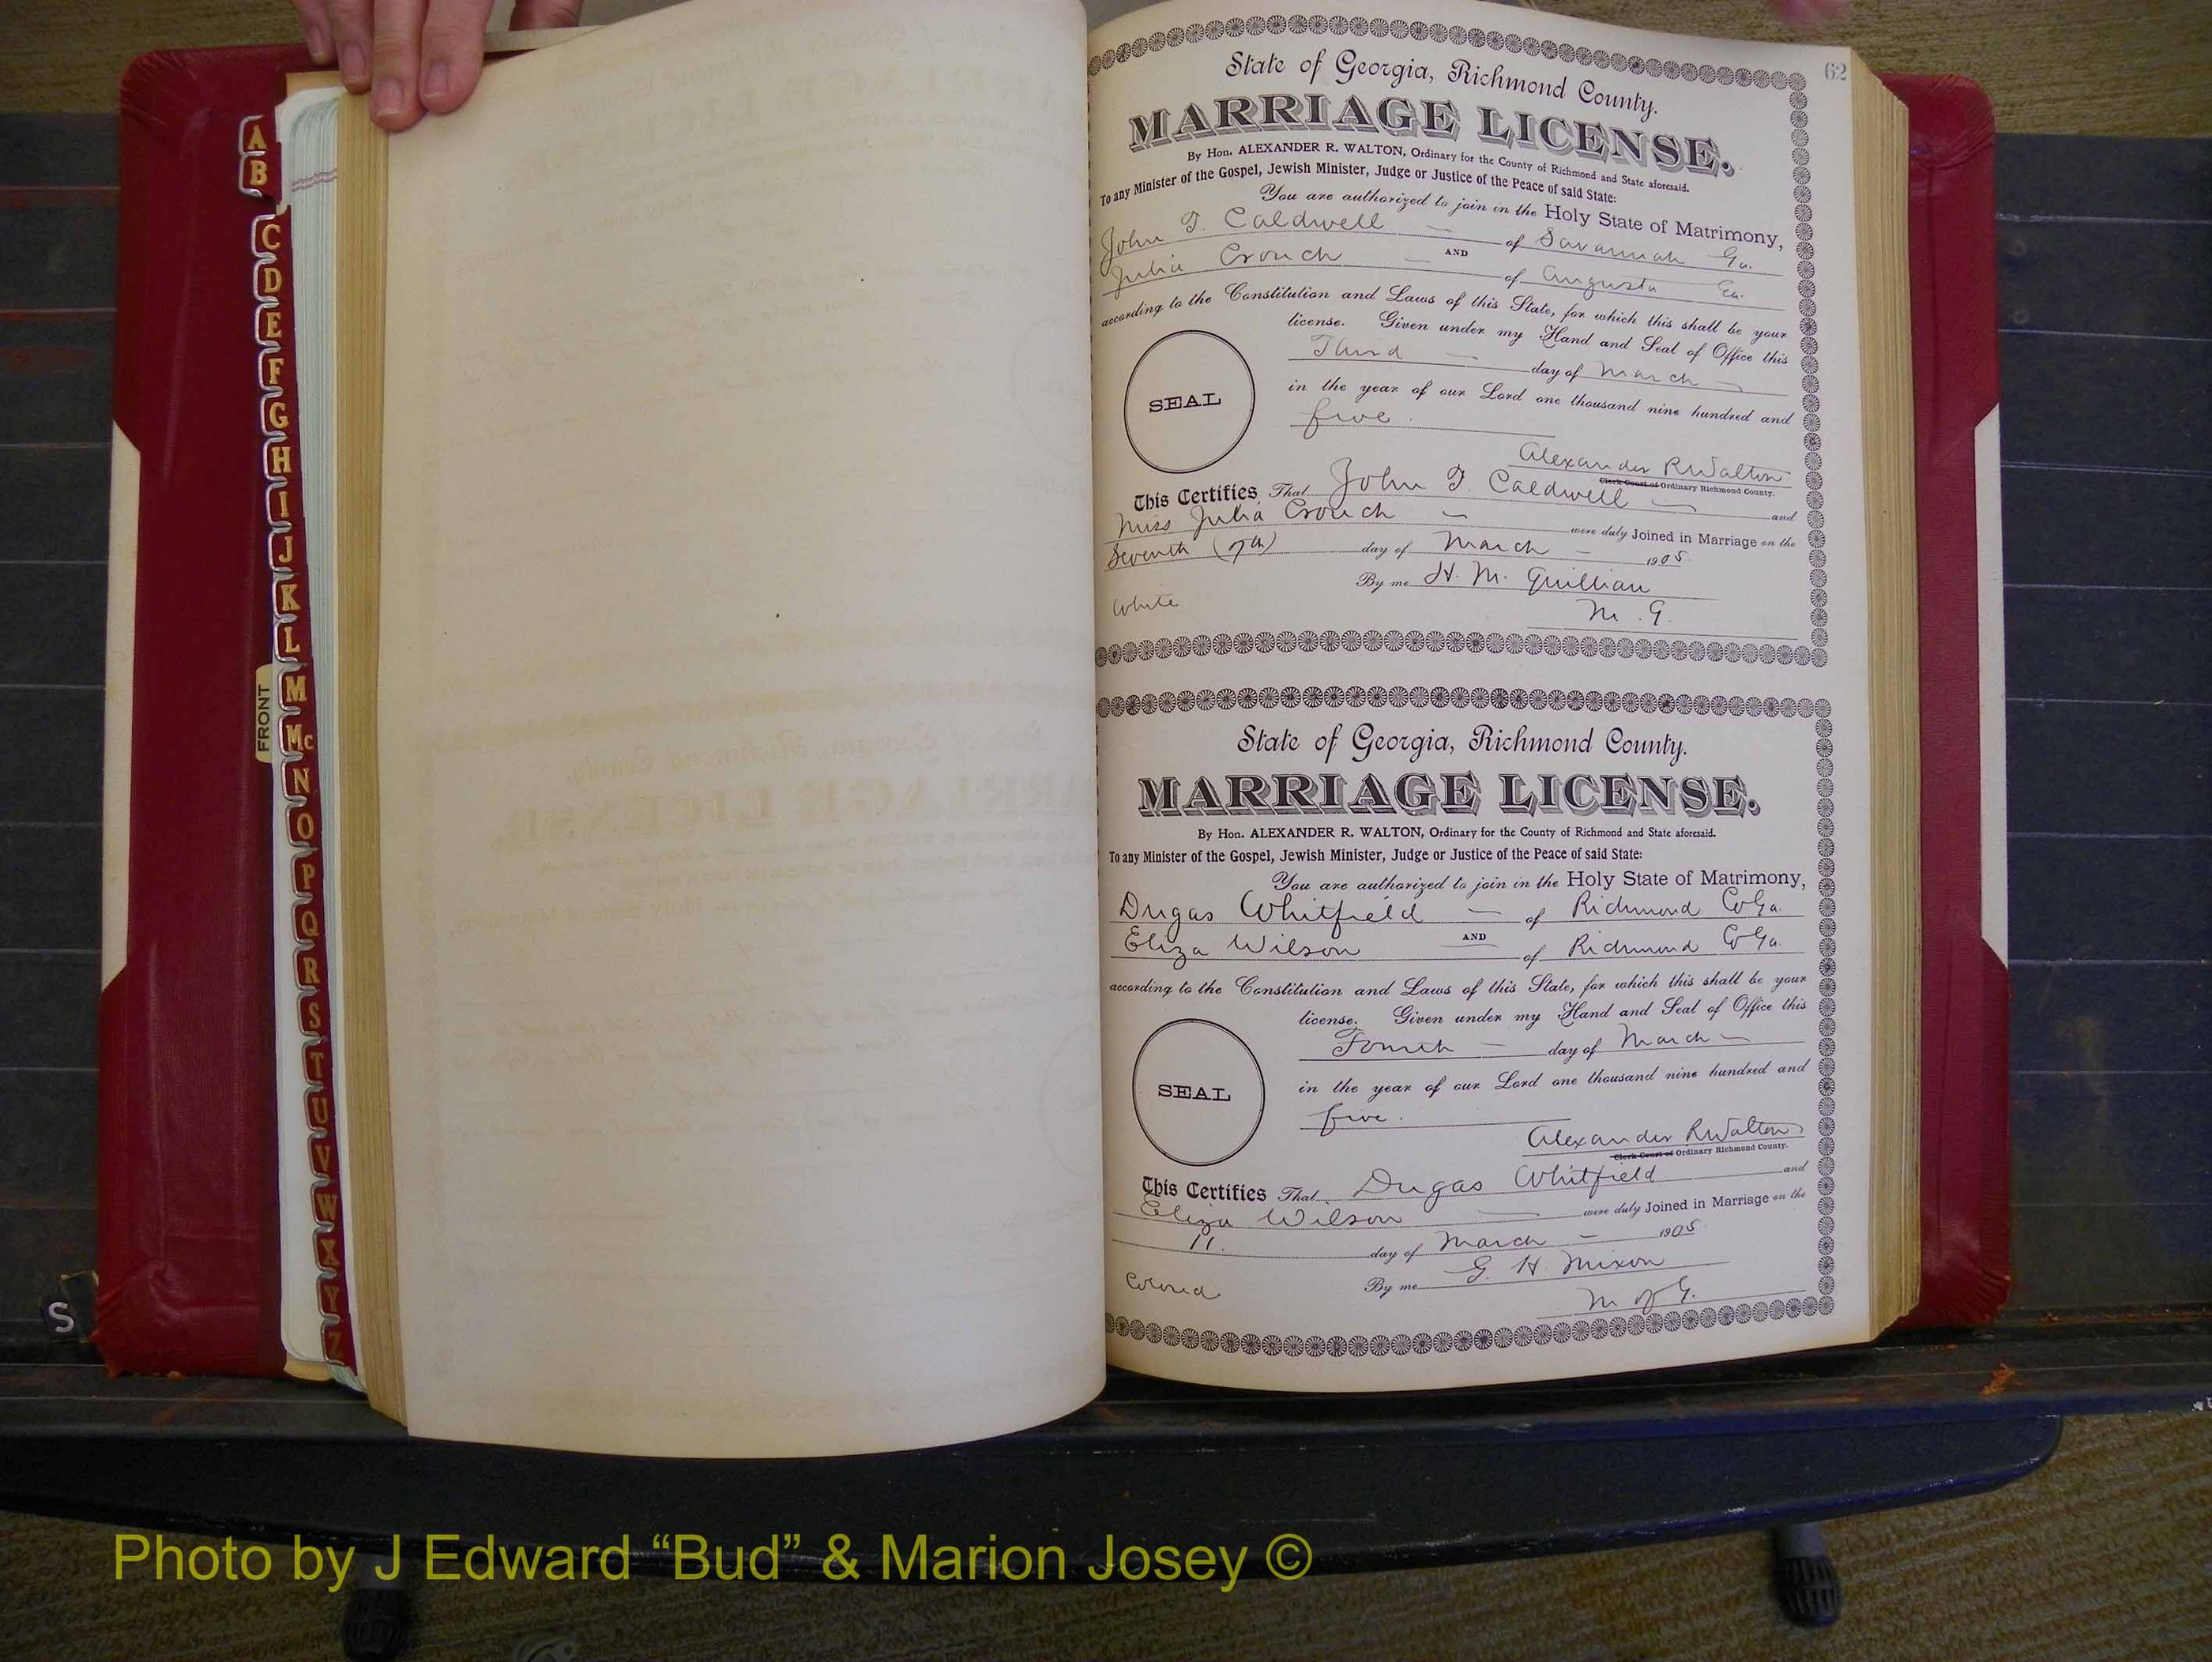 A
B
C
D
E
F
G
H
I
J
K
L
M
Mc
N
O
P
Q
R
S
T
U
V
W
X
Y
Z
FRONT
S
62
State of Georgia, Richmond County.
MARRIAGE LICENSE.
By Hon. ALEXANDER R. WALTON, Ordinary for the County of Richmond and State aforesaid.
To any Minister of the Gospel, Jewish Minister, Judge or Justice of the Peace of said State:
You are authorized to join in the Holy State of Matrimony,
John T. Caldwell — of Savannah Ga.
AND
Julia Crouch — of Augusta Ga.
according to the Constitution and Laws of this State, for which this shall be your
license. Given under my Hand and Seal of Office this
Third — day of March —
in the year of our Lord one thousand nine hundred and
five.
SEAL
Alexander R Walton
Clerk Court of Ordinary Richmond County.
This Certifies That John T. Caldwell — and
Miss Julia Crouch — were duly Joined in Marriage on the
Seventh (7th) day of March — 1905.
By me H. M. Quillian
M. G.
White
State of Georgia, Richmond County.
MARRIAGE LICENSE.
By Hon. ALEXANDER R. WALTON, Ordinary for the County of Richmond and State aforesaid.
To any Minister of the Gospel, Jewish Minister, Judge or Justice of the Peace of said State:
You are authorized to join in the Holy State of Matrimony,
Dugas Whitfield — of Richmond Co Ga.
AND
Eliza Wilson of Richmond Co Ga.
according to the Constitution and Laws of this State, for which this shall be your
license. Given under my Hand and Seal of Office this
Fourth — day of March —
in the year of our Lord one thousand nine hundred and
five.
SEAL
Alexander R Walton
Clerk Court of Ordinary Richmond County.
This Certifies That Dugas Whitfield and
Eliza Wilson — were duly Joined in Marriage on the
11. day of March — 1905
By me G. H. Nixon
M of G.
Colored
Photo by J Edward “Bud” & Marion Josey ©